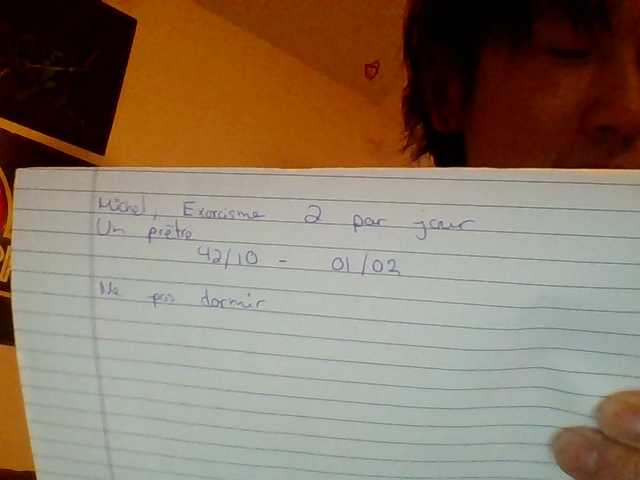 Michel, Exorcisme 2 par jour
Un prêtre
42/10 - 01/02
Ne pas dormir